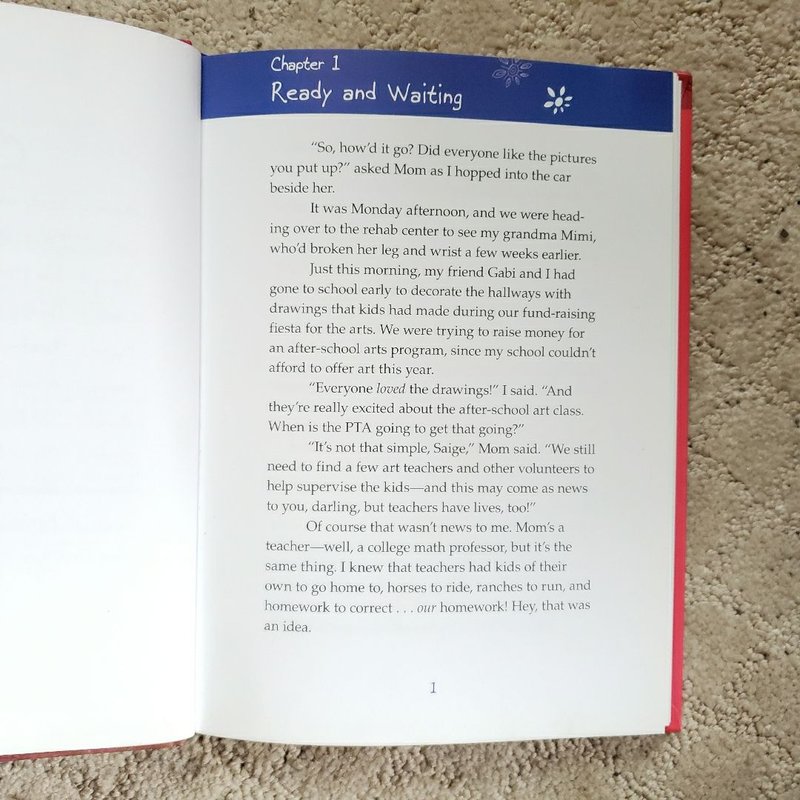 Chapter 1
Ready and Waiting
“So, how’d it go? Did everyone like the pictures
you put up?” asked Mom as I hopped into the car
beside her.
It was Monday afternoon, and we were head-
ing over to the rehab center to see my grandma Mimi,
who’d broken her leg and wrist a few weeks earlier.
Just this morning, my friend Gabi and I had
gone to school early to decorate the hallways with
drawings that kids had made during our fund-raising
fiesta for the arts. We were trying to raise money for
an after-school arts program, since my school couldn’t
afford to offer art this year.
“Everyone loved the drawings!” I said. “And
they’re really excited about the after-school art class.
When is the PTA going to get that going?”
“It’s not that simple, Saige,” Mom said. “We still
need to find a few art teachers and other volunteers to
help supervise the kids—and this may come as news
to you, darling, but teachers have lives, too!”
Of course that wasn’t news to me. Mom’s a
teacher—well, a college math professor, but it’s the
same thing. I knew that teachers had kids of their
own to go home to, horses to ride, ranches to run, and
homework to correct . . . our homework! Hey, that was
an idea.
1